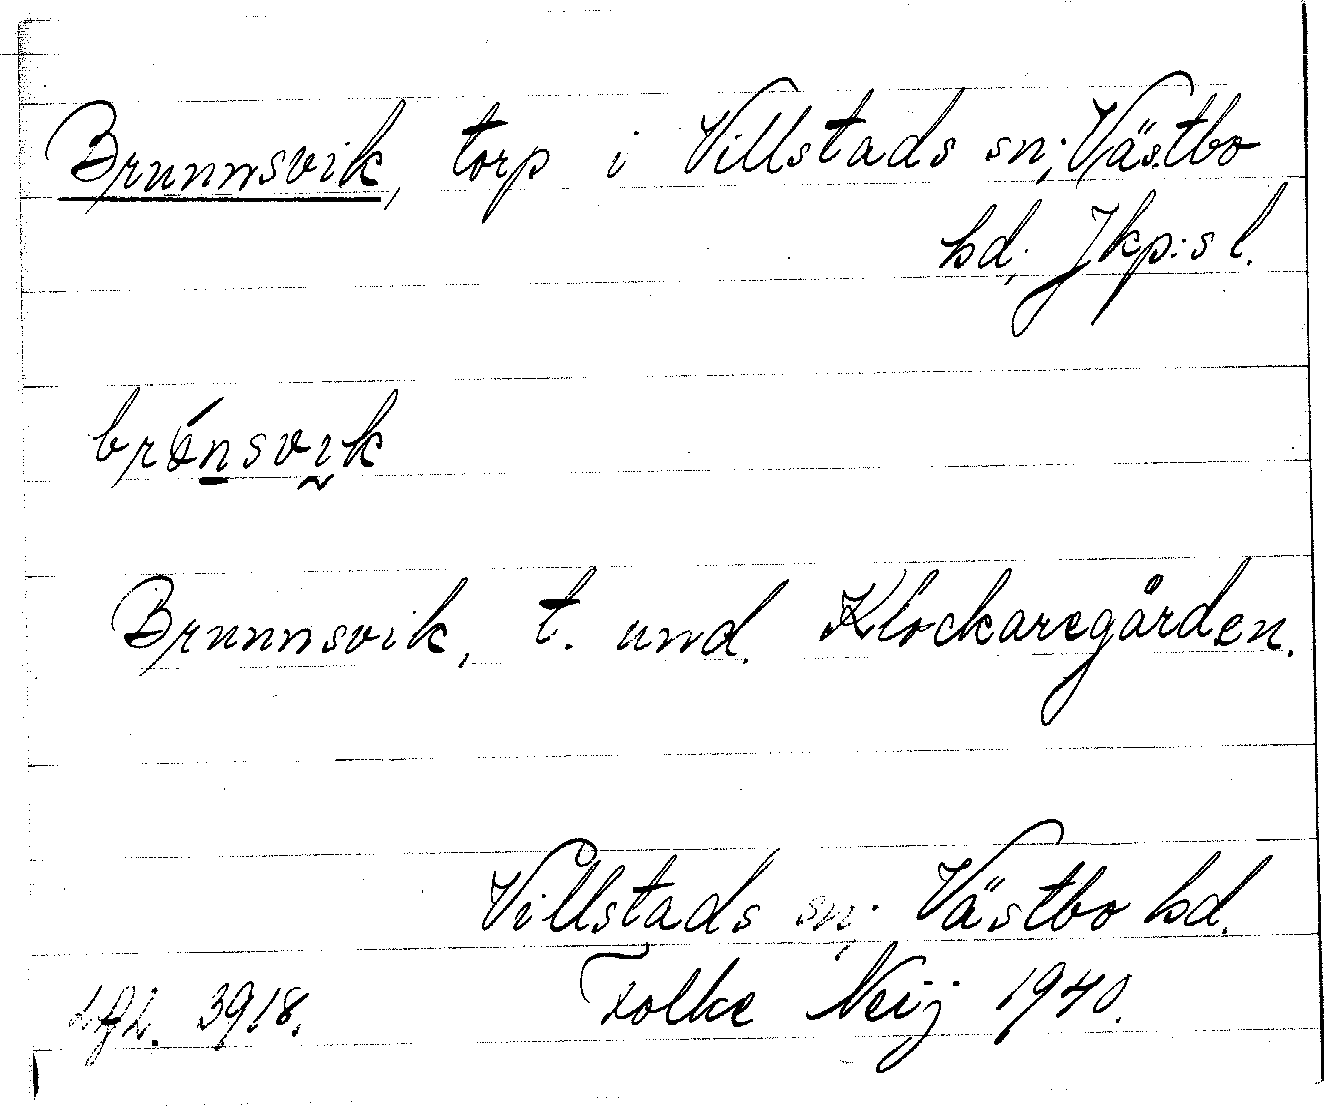 Brunnsvik, torp i Villstads sn; Västbo
hd; Jkp:s l.
brónsvik
Brunnsvik, t. und. Klockaregården.
Villstads sn; Västbo hd.
3918. Folke Neij 1940.